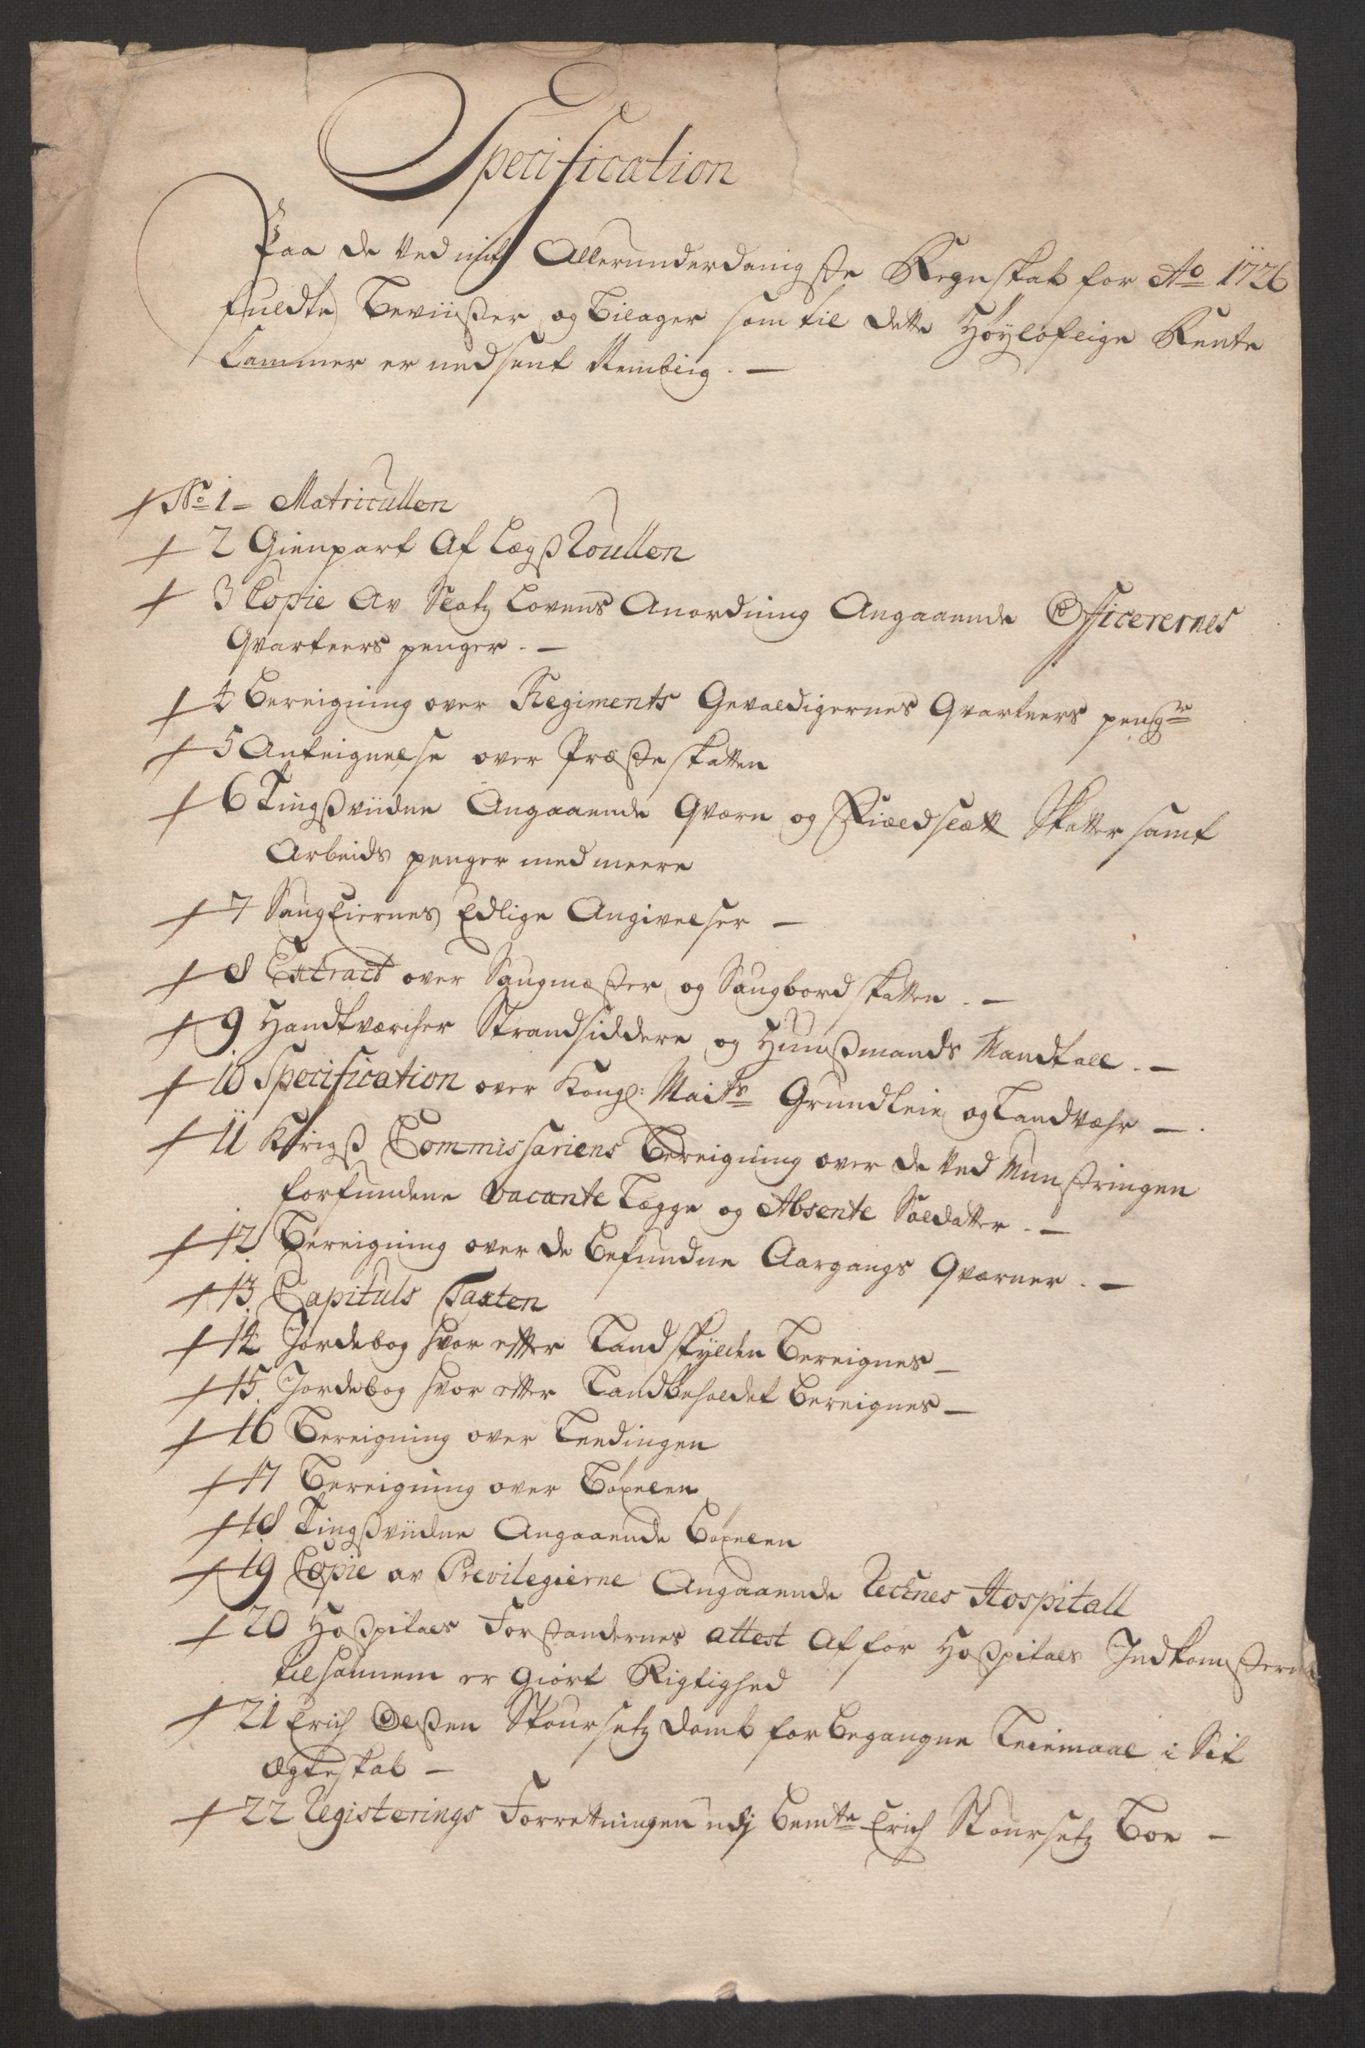 Specification
Paa de ved mit Allerunderdanigste Regnskab for Ao 1726
fuldte Beviißer og Bilager som til dette Høyloflige Rente
Cammer er nedsent Nemblig. —
No 1 - Matricullen
2 Gienpart Af Lægß Roullen
3 Copie Av Slotz Lovens Anordning Angaaende Officerernes
Qvarteers penger. —
4 Bereigning over Regiments Gevaldigernes Qvarteers pengr
5 Anteignelse over Præste skatten
6 Tingßviidne Angaaende Qværn og Fiældslætt Skatter samt
Arbeids penger med meere
7 Saugeiernes Edlige Angivelser —
8 Extract over Saugmæster og Saugbord skatten. —
9 Handtværcher Strandsiddere og Huußmands Mandtall. —
10 Specification over Kongl: Maits Grundleie og Landværn —.
11 Krigß Commissariens Bereigning over de ved Munstringen
forfundene vacante Lægge og Absente Soldatter. —
12 Bereigning over de befundne Aargangs Qværner. —
13 Capituls Taxten
14 Jordebog hvor efter Landskylden Bereignes —
15 Jordebog hvor etter Landbeholdet bereignes —
16 Bereigning over Leedingen
17 Bereigning over Bøxelen
18 Tingßviidne Angaaende Bøxelen
19 Copie av Previlegierne Angaaende Lechnes Hospitall
20 Hoßpitals Forstandernes attest Af for Hoßpitals Indkomsterne
tilsammen er Giort Rigtighed
21 Erich Olßen Skoursetz domb for begangne Leiermaal i Sit
Ægteskab —
22 Registerings Forretningen udj bemte Erich Skoursetz Boe —